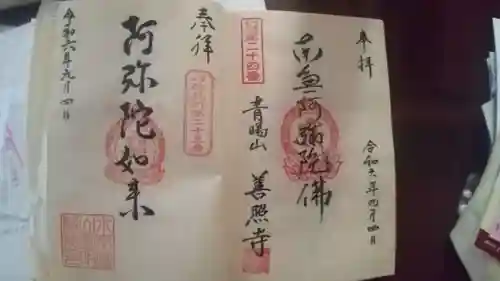 奉拝
南無阿弥陀佛
令和六年九月四日
第二十四番
青陽山 善照寺
奉拝
阿弥陀如来
令和六年九月四日